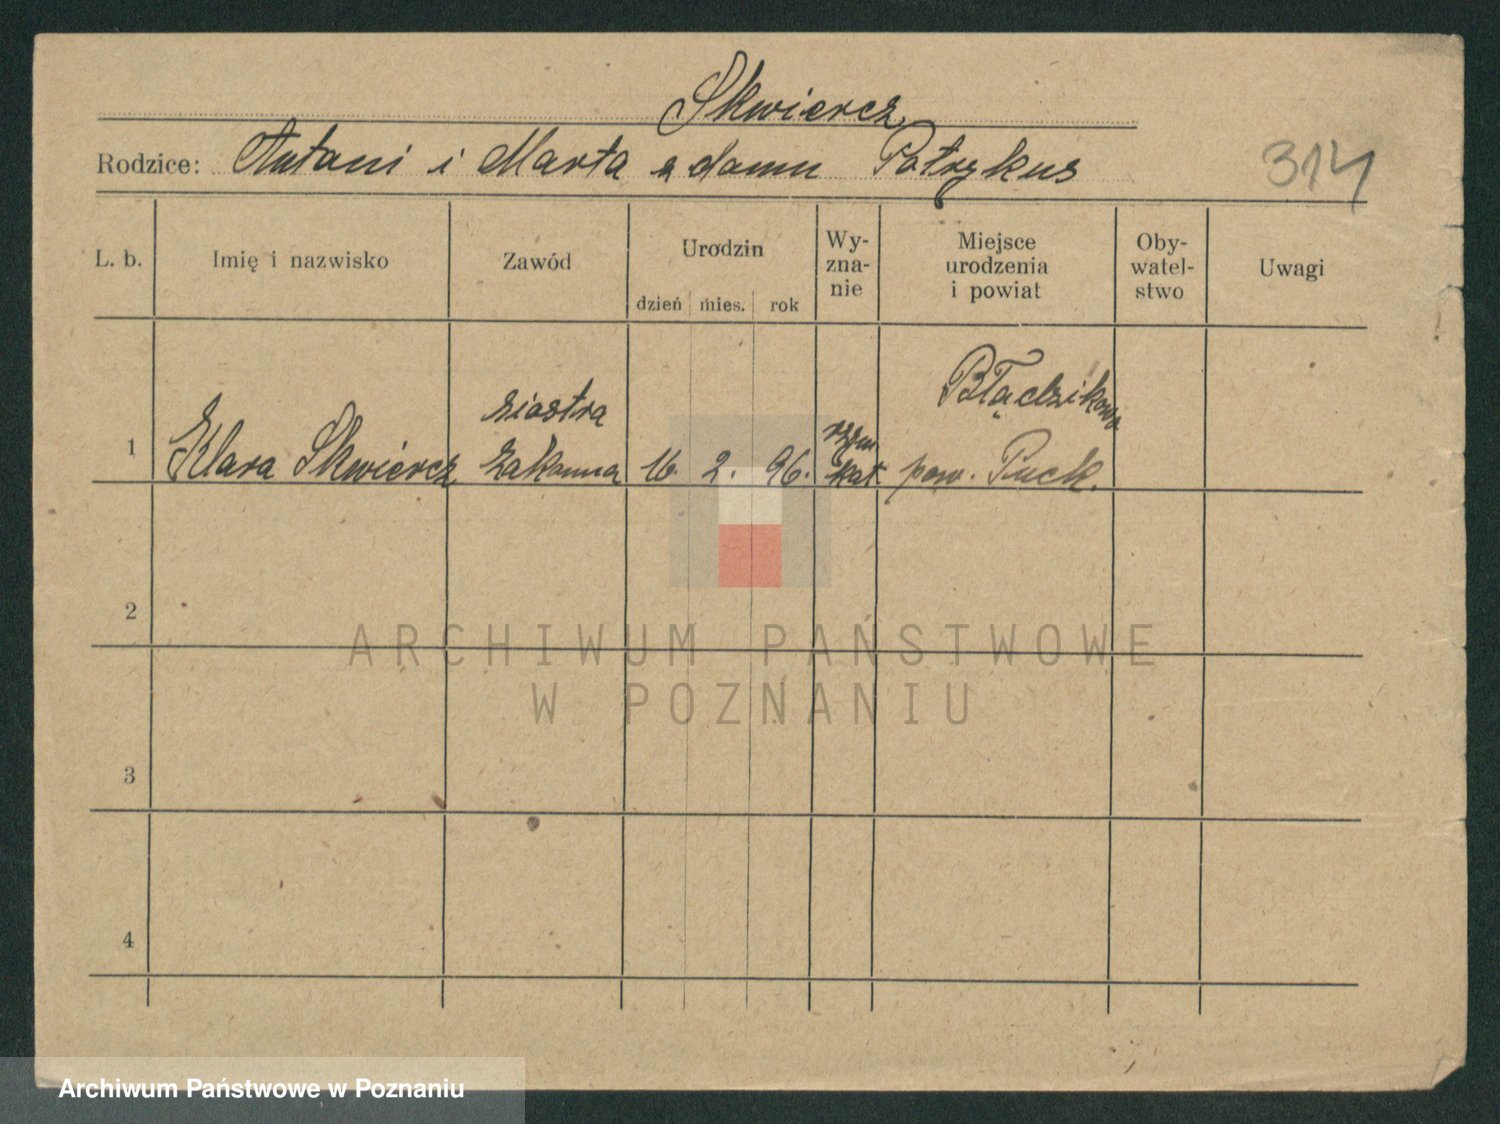 Skwiercz
Rodzice: Antoni i Marta z domu Potrykus
314
L. b. Imię i nazwisko Zawód Urodzin Wy-zna-nie Miejsce urodzenia i powiat Oby-watel-stwo Uwagi
dzień mies. rok
1 Klara Skwiercz siostra zakonna 16. 2. 96. rzym kat. Błądzikowo pow. Puck.
2
ARCHIWUM PAŃSTWOWE
W POZNANIU
3
4
Archiwum Państwowe w Poznaniu